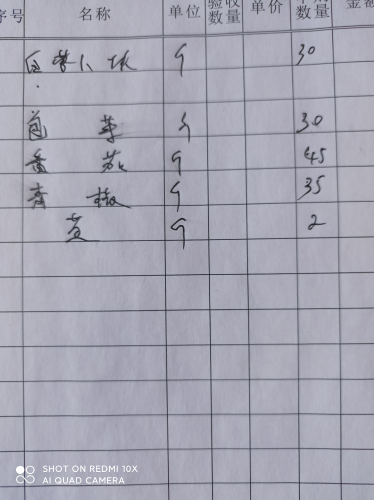 序号 名称 单位 验收数量 单价 数量 金额
30
包菜 斤 30
斤 45
青椒 斤 35
姜 斤 2
SHOT ON REDMI 10X
AI QUAD CAMERA